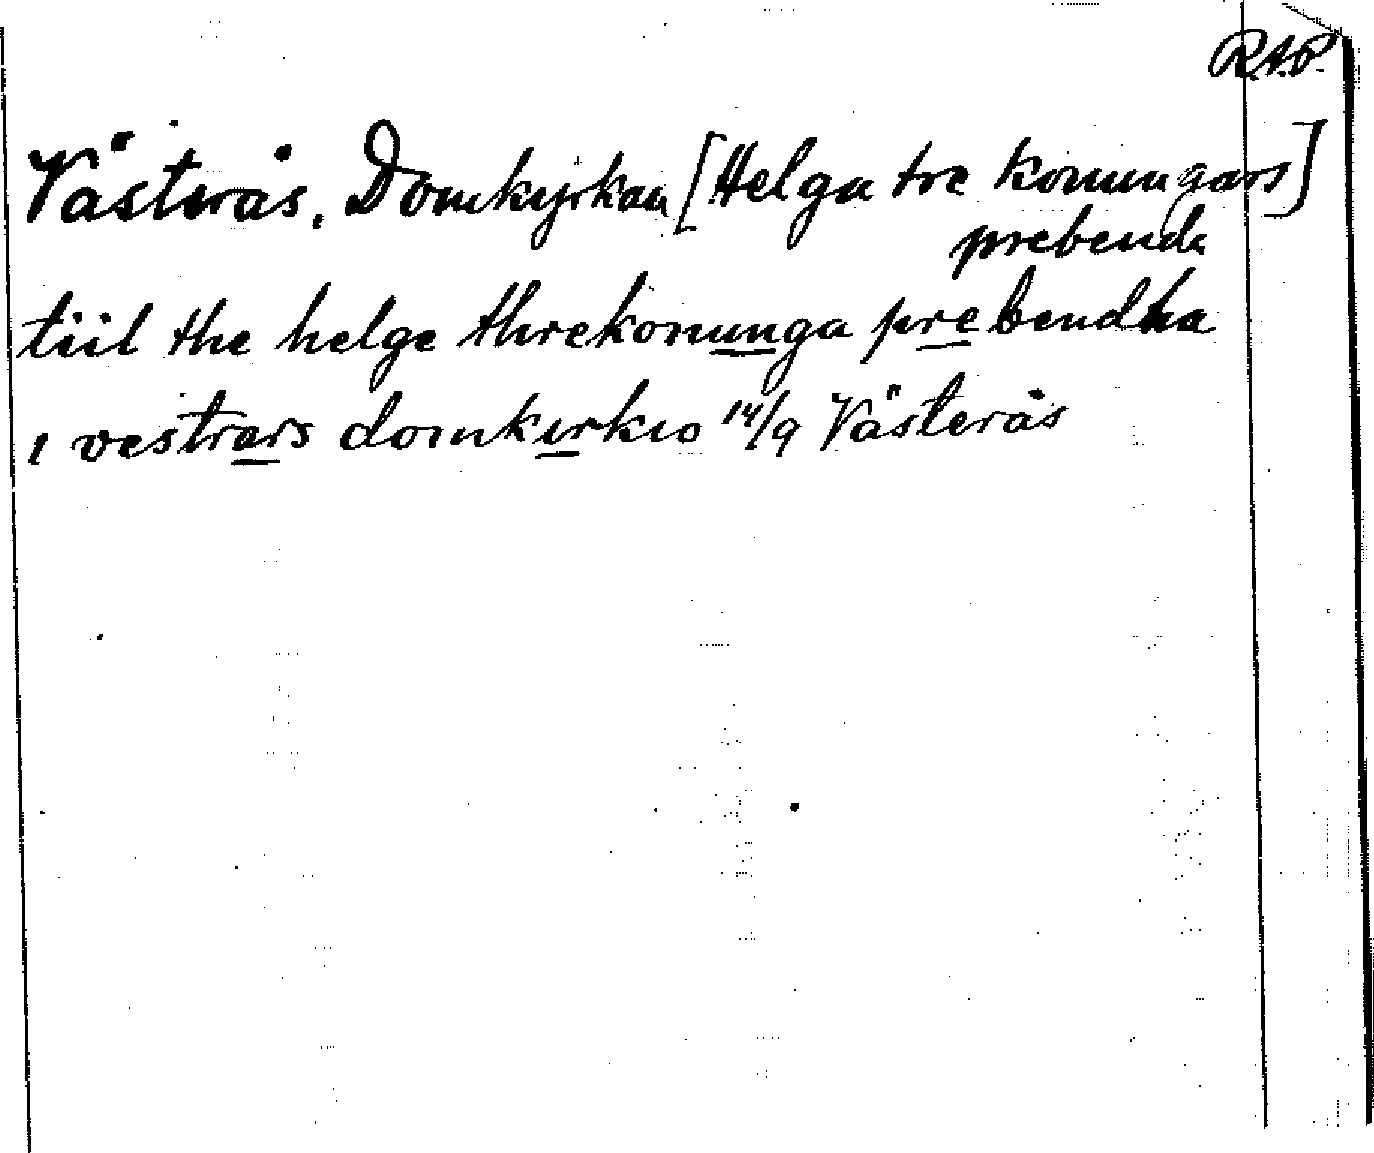 RAP
Västerås, Domkyrkan [Helga tre konungars]
prebenda
tiil the helge threkonunga prebendha
i vestrars domkirkio 14/9 Västerås